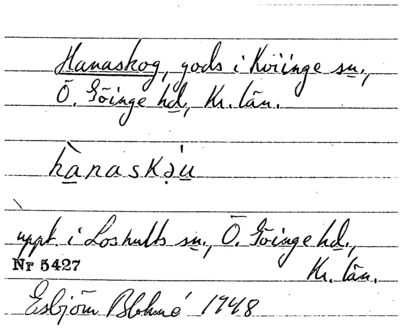 Hanaskog, gods i Kviinge sn.,
Ö. Göinge hd, Kr. län.
hànaskə̣u
uppt. i Loshults sn., Ö. Göinge hd.,
Nr 5427 Kr. län.
Esbjörn 1948